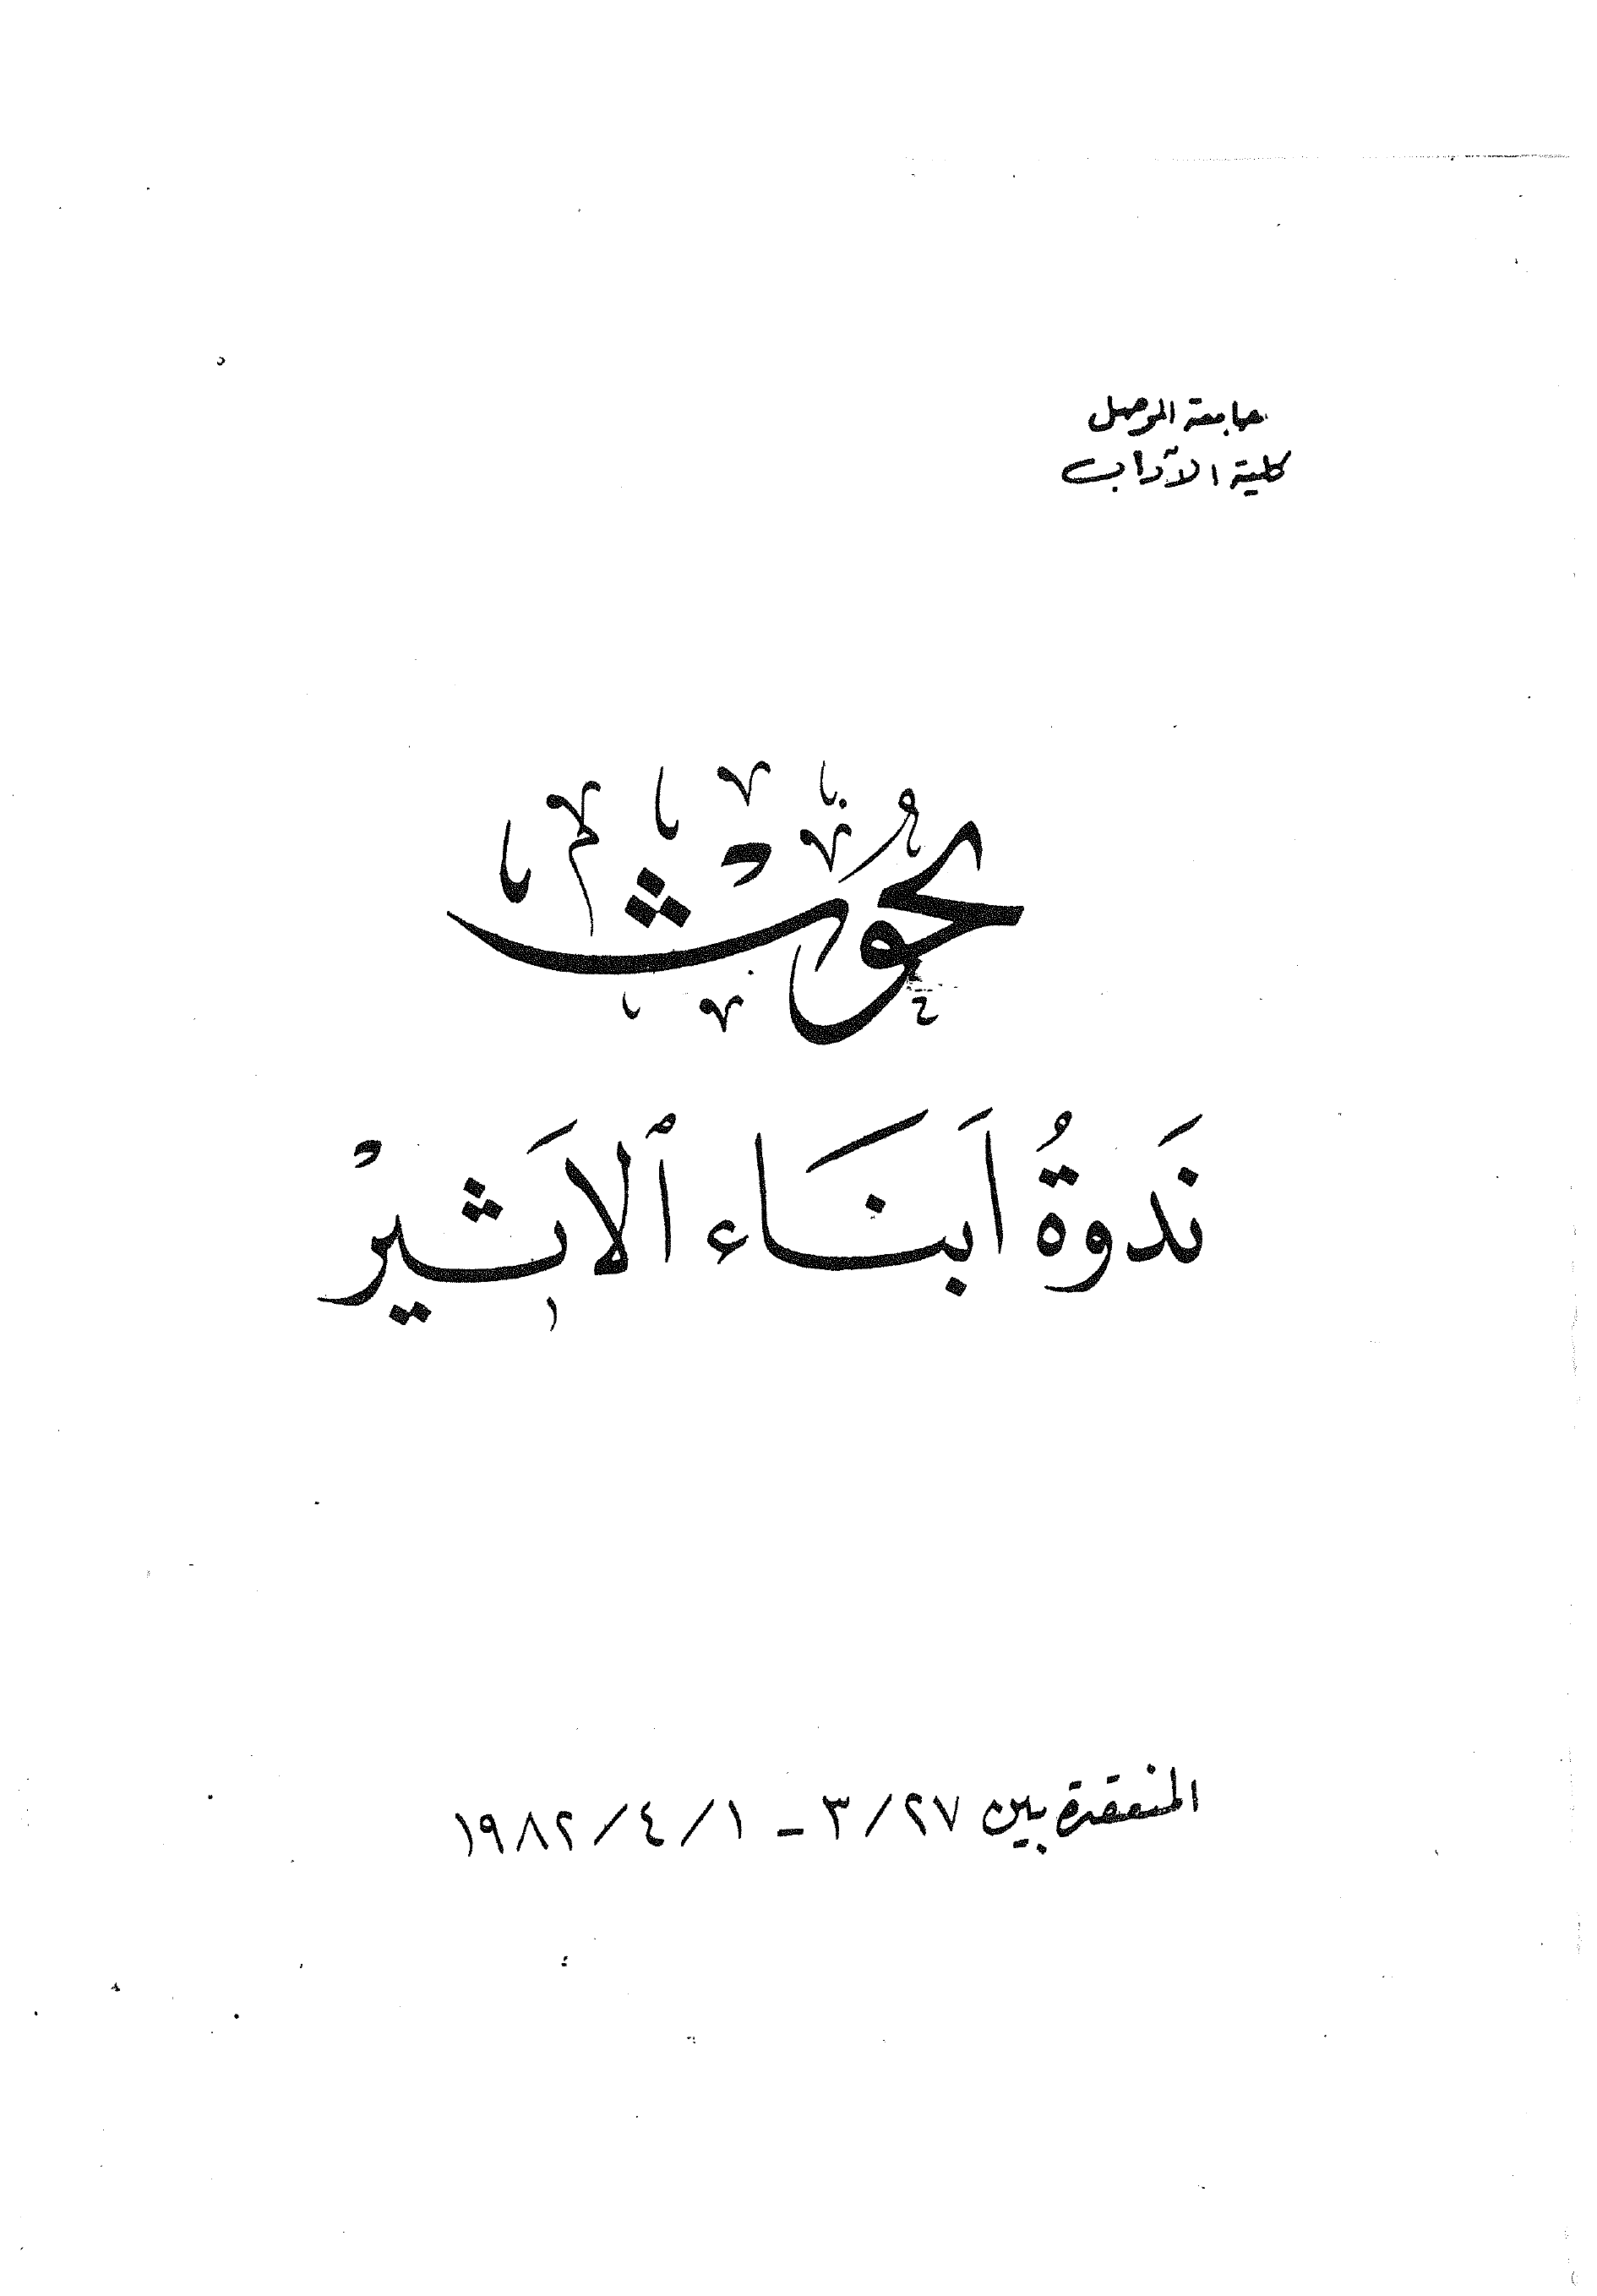 جامعة الموصل
كلية الآداب
بحُوثْ
نَدوةُ اَبنَاء ٱلاَثيرْ
المنعقدة بين ٢٧/٣ - ١/٤/١٩٨٢